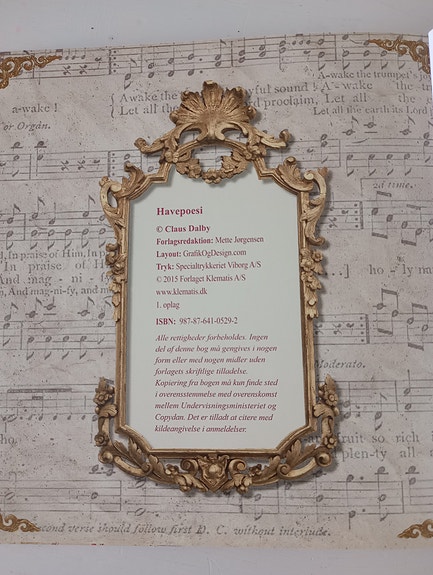 Awake the trumpet's
Awake the joyful sound! A-wake the
Let all the proclaim, Let all the earth its Lord
a-wake
or Organ.
2d time.
In praise of Him, In
In praise of H
And mag - ni - fy
And mag-ni-fy, and
ho - ly
Havepoesi
© Claus Dalby
Forlagsredaktion: Mette Jørgensen
Layout: GrafikOgDesign.com
Tryk: Specialtrykkeriet Viborg A/S
© 2015 Forlaget Klematis A/S
www.klematis.dk
1. oplag
ISBN: 987-87-641-0529-2
Alle rettigheder forbeholdes. Ingen
del af denne bog må gengives i nogen
form eller med nogen midler uden
forlagets skriftlige tilladelse.
Kopiering fra bogen må kun finde sted
i overensstemmelse med overenskomst
mellem Undervisningsministeriet og
Copydan. Det er tilladt at citere med
kildeangivelse i anmeldelser.
Moderato.
fruit so rich
plen-ty all
second verse should follow first D. C. without interlude.